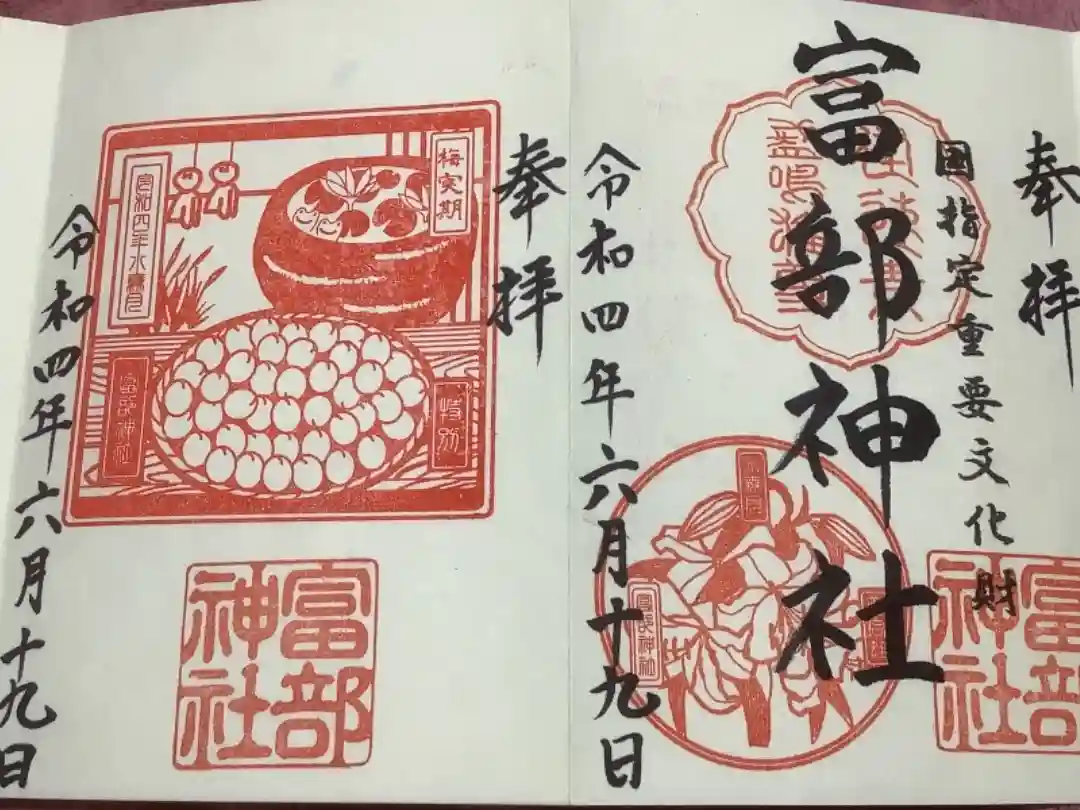 奉拝
國指定重要文化財
富部神社
富部神社
富部神社
令和四年六月十九日
奉拝
梅実期
特別
令和四年水無月
富部神社
富部神社
令和四年六月十九日